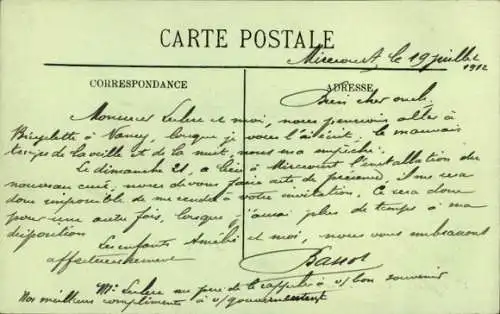 CARTE POSTALE
Mirecourt, le 19 juillet
1912
CORRESPONDANCE
ADRESSE
Bien cher oncle,
Monsieur Leclerc et moi, nous pensions aller à
Bicyclette à Nancy, lorsque je vous l'ai écrit. Le mauvais
temps de la veille et de la nuit, nous a empêché.
Le dimanche 21, a lieu à Mirecourt l'installation du
nouveau curé, nous devons faire acte de présence. Il me sera
donc impossible de me rendre à votre invitation. Ce sera donc
pour une autre fois, lorsque j'aurai plus de temps à ma
disposition
Les enfants Amélie et moi, nous vous embrassons
affectueusement
Bassot
Mr Leclerc au père de le rappeler à v/ bon souvenir
Nos meilleurs compliments à v/